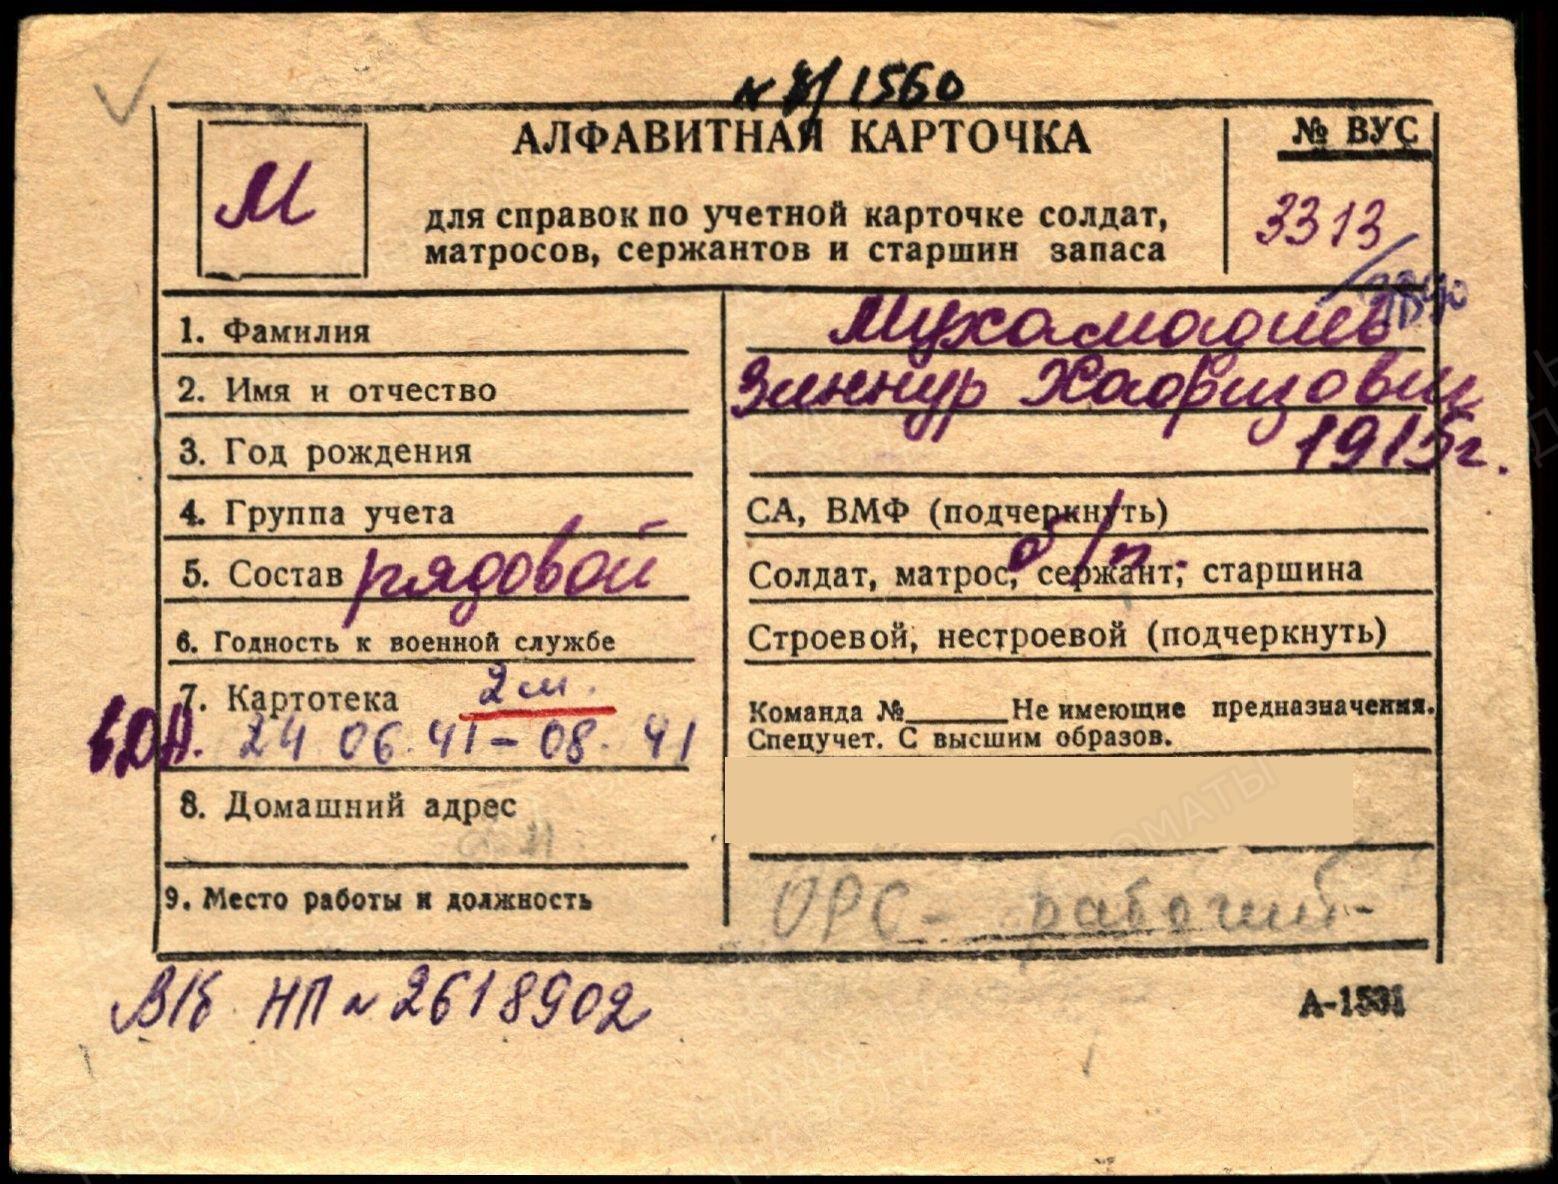 1560
АЛФАВИТНАЯ КАРТОЧКА
№ ВУС
М
3313
для справок по учетной карточке солдат,
матросов, сержантов и старшин запаса
1. Фамилия Мухамадиев
2. Имя и отчество Зиннур Хафизович
3. Год рождения 1915г.
4. Группа учета СА, ВМФ (подчеркнуть)
5. Состав рядовой Солдат, матрос, сержант, старшина
б/п.
6. Годность к военной службе Строевой, нестроевой (подчеркнуть)
7. Картотека 2 м. Команда №______ Не имеющие предназначения.
24 06. 41 – 08. 41 Спецучет. С высшим образов.
8. Домашний адрес
9. Место работы и должность ОРС – рабочий –
В/б НП № 2618902
А-1531